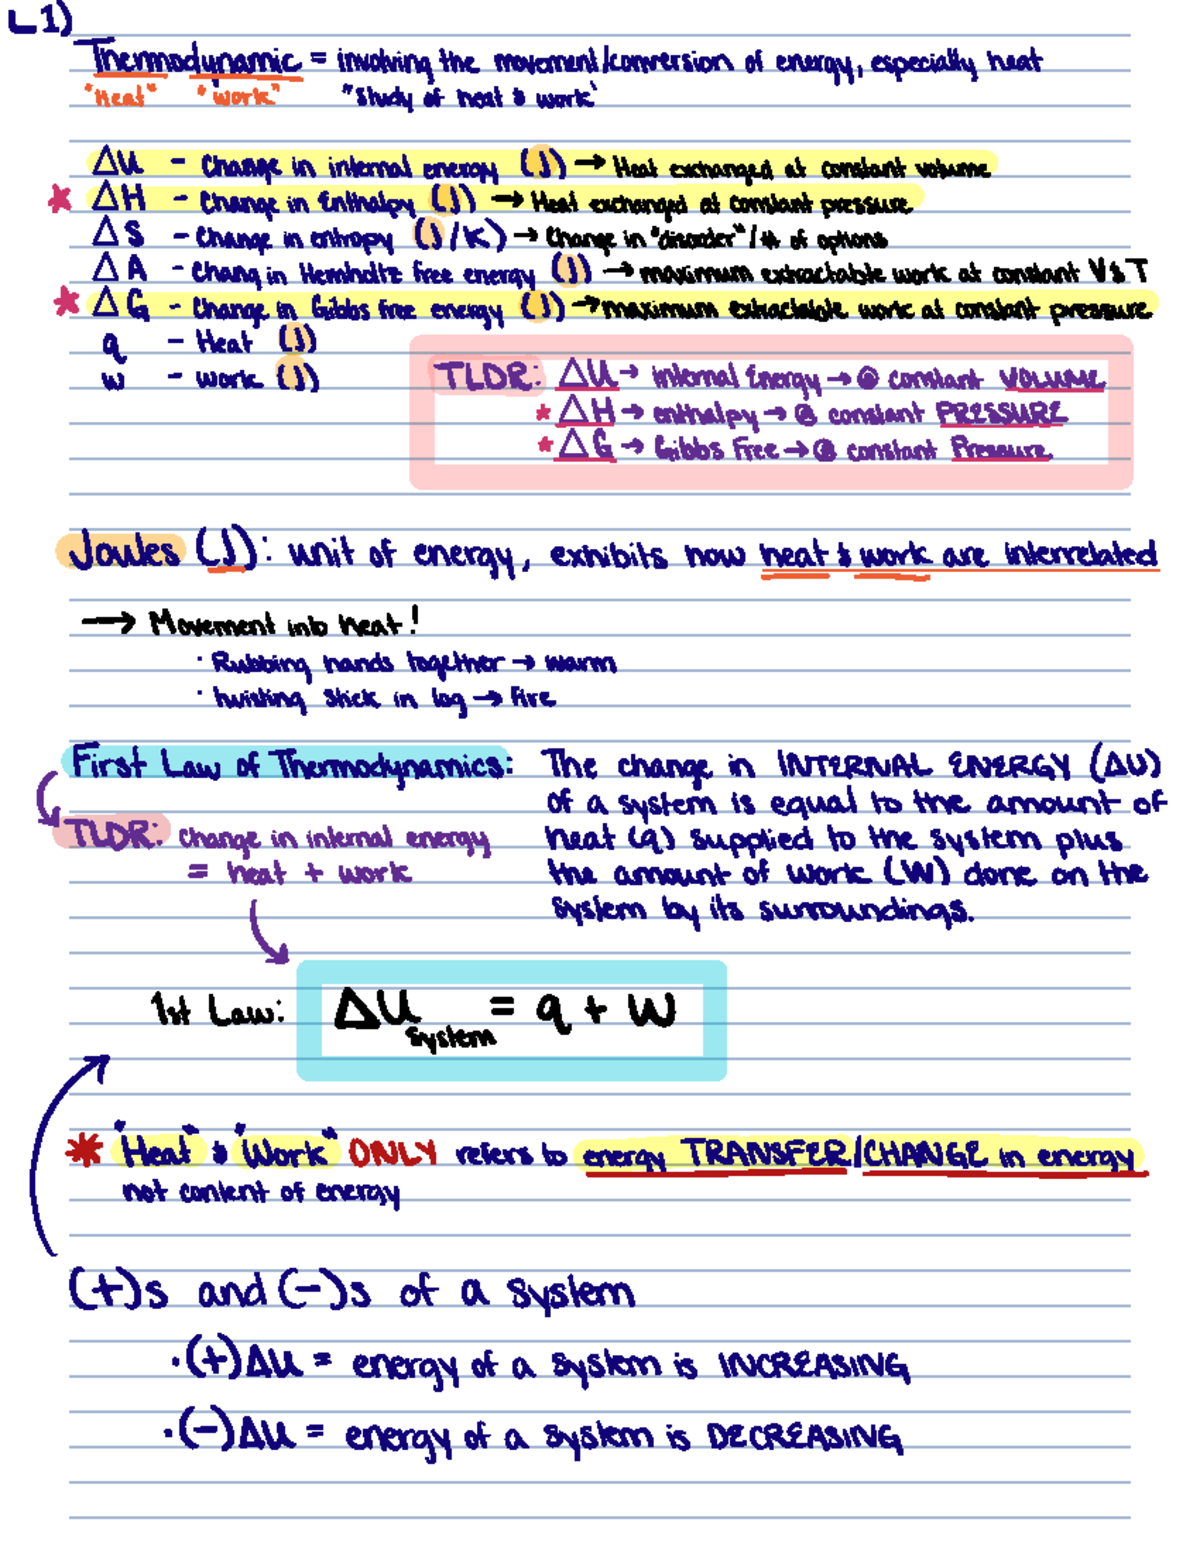 L1)
Thermodynamic = involving the movement/conversion of energy, especially heat
"Heat" "work" "study of heat & work"
ΔU - Change in internal energy (J) → Heat exchanged at constant volume
* ΔH - Change in Enthalpy (J) → Heat exchanged at constant pressure
ΔS - Change in entropy (J/K) → Change in "disorder"/# of options
ΔA - Chang in Hemholtz free energy (J) → maximum extractable work at constant V & T
* ΔG - Change in Gibbs free energy (J) → maximum extractable work at constant pressure
q - Heat (J)
w - Work (J)
TLDR: ΔU → internal Energy → @ constant VOLUME
* ΔH → enthalpy → @ constant PRESSURE
* ΔG → Gibbs Free → @ constant Pressure
Joules (J): unit of energy, exhibits how heat & work are interrelated
→ Movement into heat!
· Rubbing hands together → warm
· twisting stick in log → fire
First Law of Thermodynamics: The change in INTERNAL ENERGY (ΔU)
of a system is equal to the amount of
heat (q) supplied to the system plus
the amount of work (W) done on the
system by its surroundings.
TLDR: change in internal energy
= heat + work
1st Law: ΔU system = q + W
* "Heat" & "Work" ONLY refers to energy TRANSFER/CHANGE in energy
not content of energy
(+)s and (-)s of a system
· (+)ΔU = energy of a system is INCREASING
· (-)ΔU = energy of a system is DECREASING